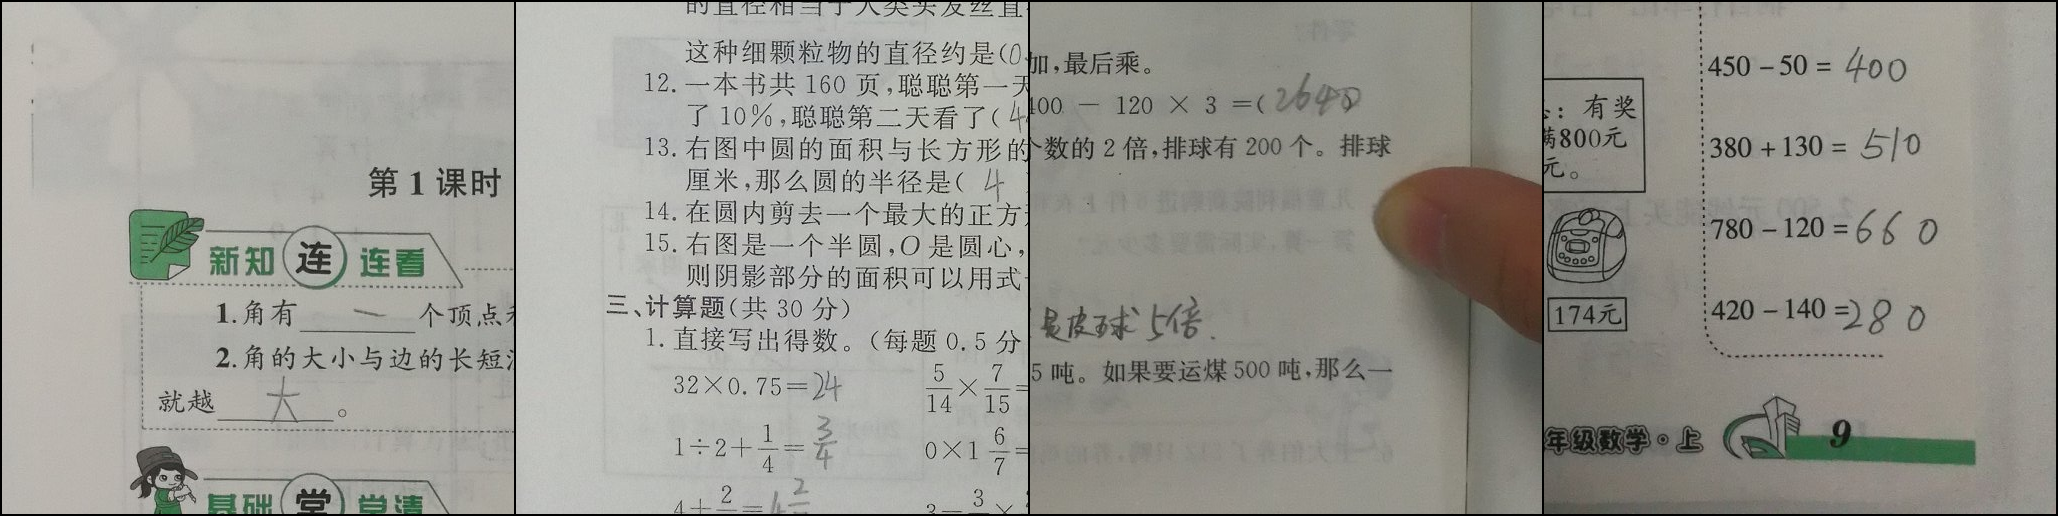 第1课时
新知 连 连看
1.角有 一 个顶点
2.角的大小与边的长短
就越 大 。
基础 堂 堂清
的直径相当于人类头发丝直
这种细颗粒物的直径约是(0
12.一本书共160页,聪聪第一天
了10%,聪聪第二天看了(4
13.右图中圆的面积与长方形的
厘米,那么圆的半径是( 4
14.在圆内剪去一个最大的正方
15.右图是一个半圆,O是圆心,
则阴影部分的面积可以用式
三、计算题(共30分)
1.直接写出得数。(每题0.5分
32×0.75=24 5/14×7/15=
1÷2+1/4=3/4 0×1 6/7=
加,最后乘。
400 - 120 × 3 =( 2640)
个数的2倍,排球有200个。排球
是皮球5倍.
5吨。如果要运煤500吨,那么一
450-50=400
有奖
满800元
380+130=510
元。
780-120=660
174元
420-140=280
年级数学·上 9